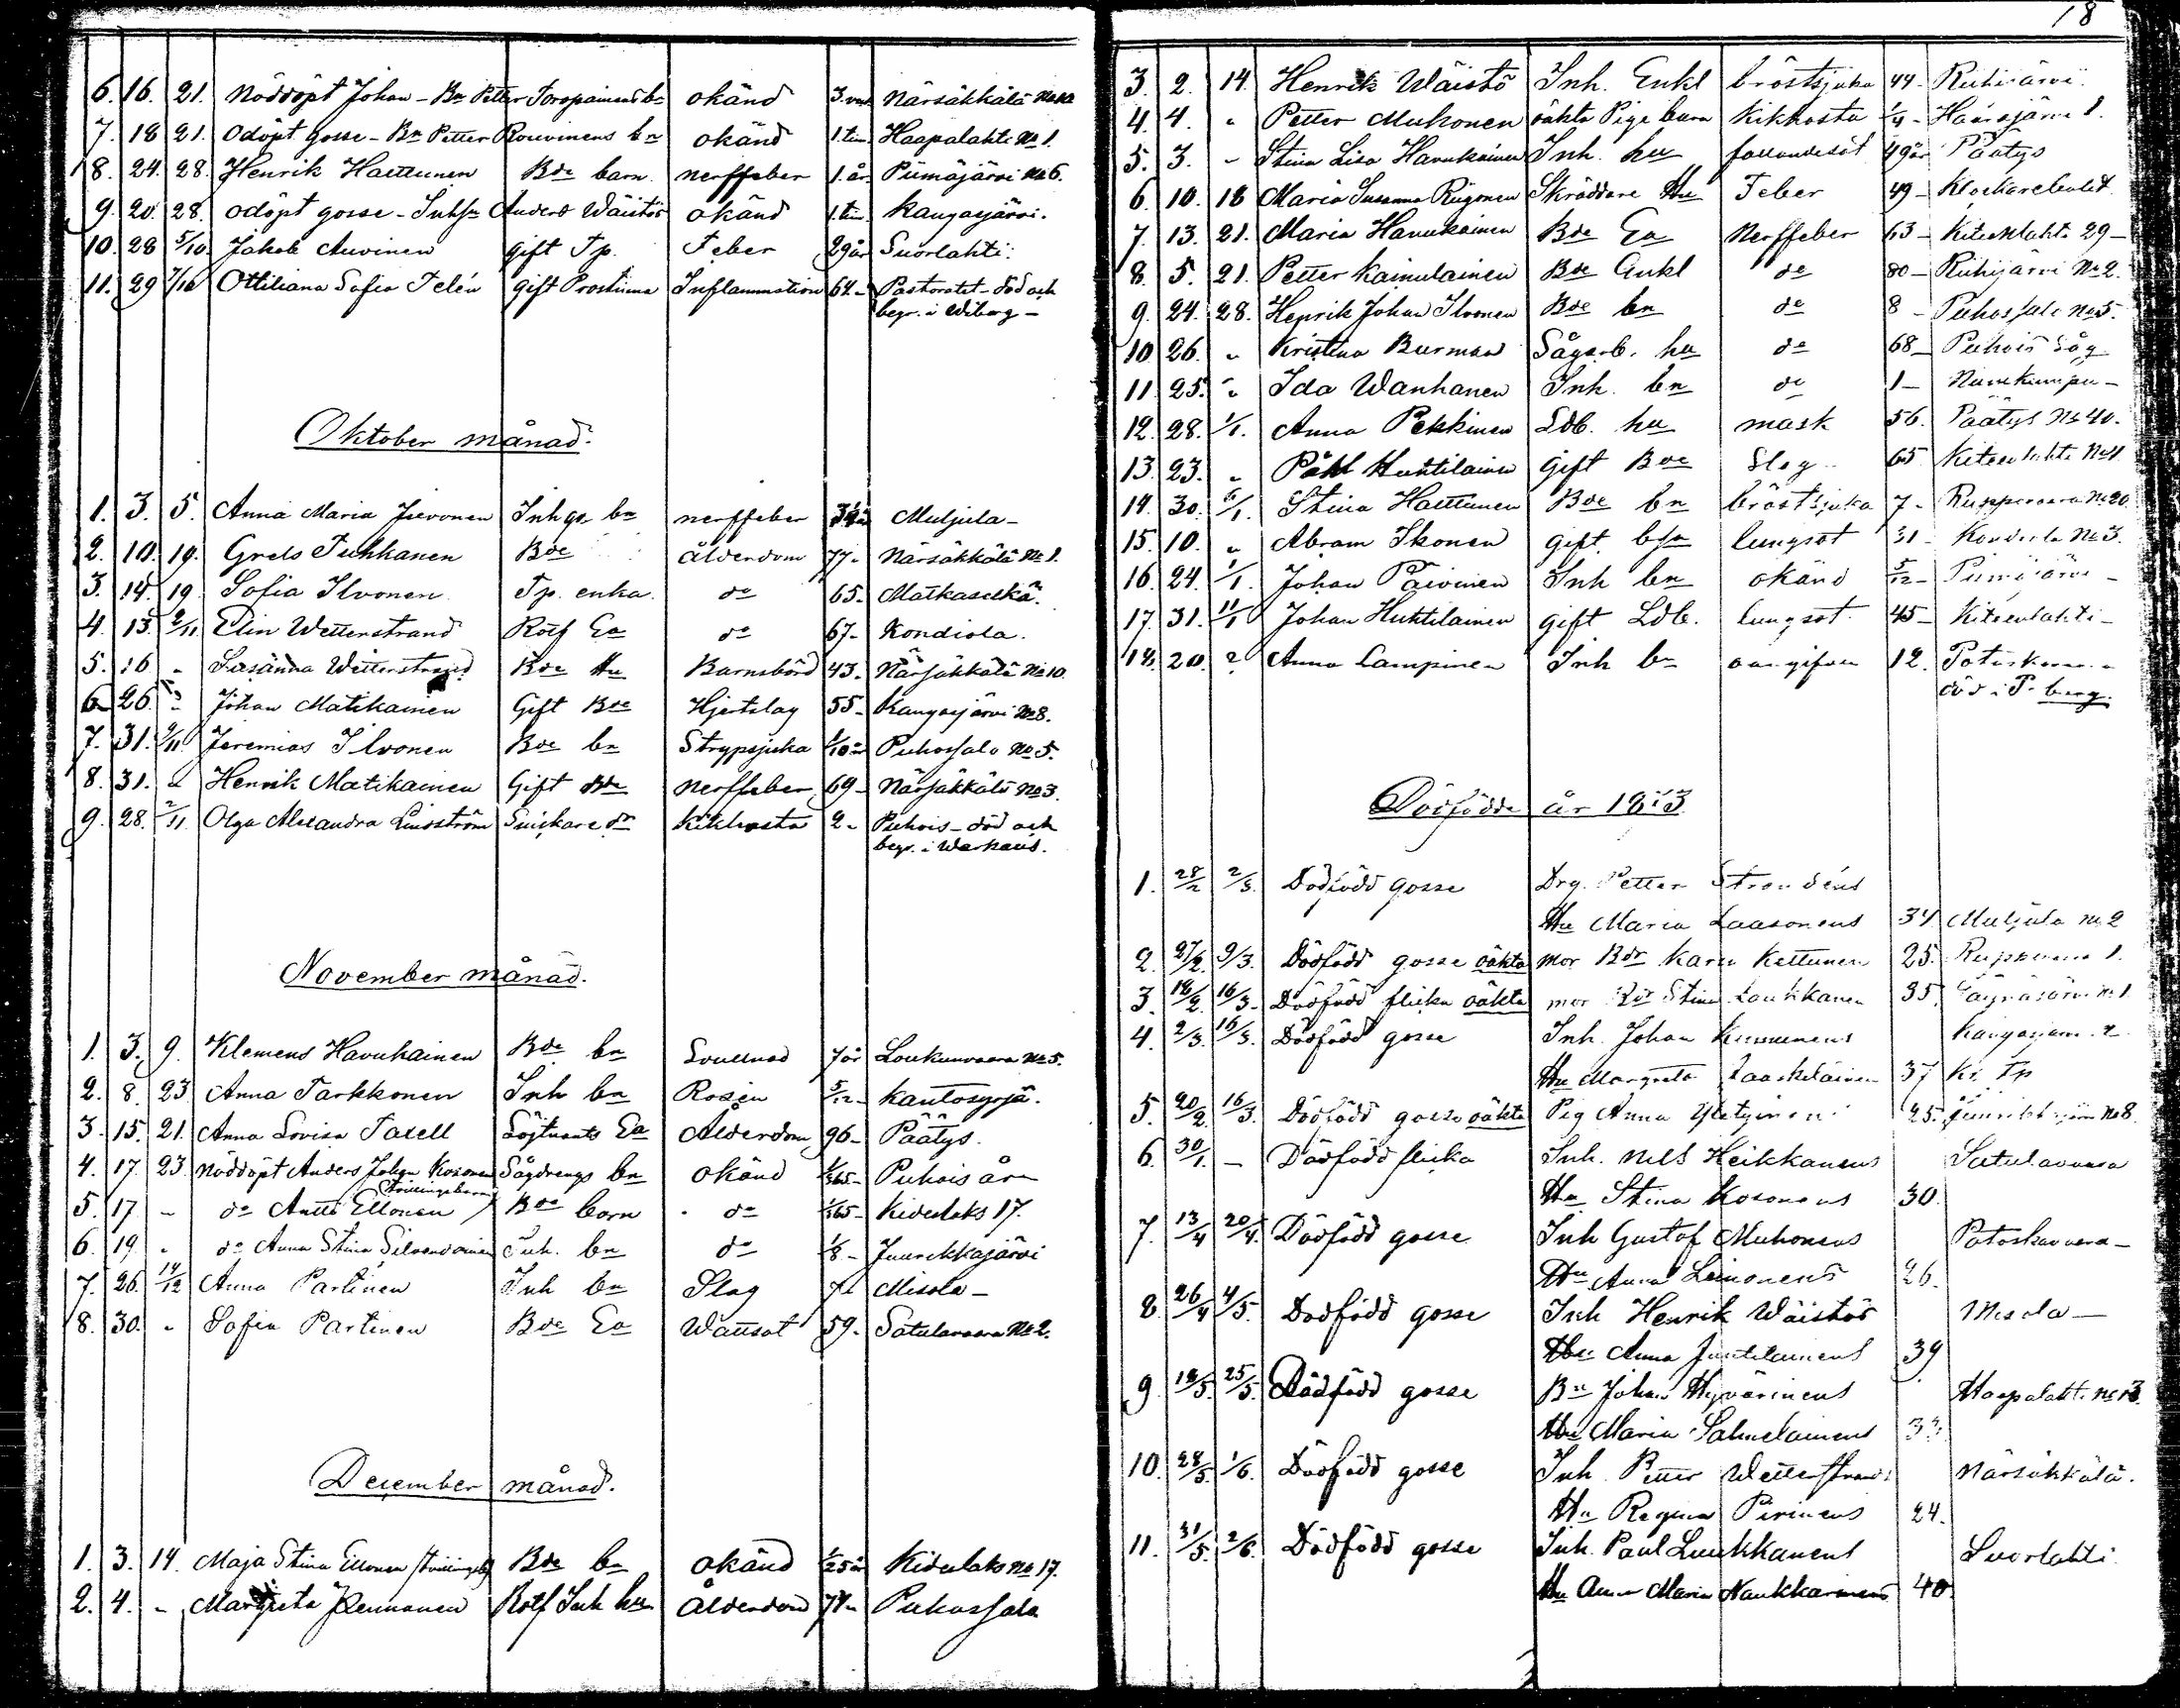 6. 16. 21. Nöddöpt Johan - Bn Petter Toropainens bn okänd 3. Närsäkkälä No 10
7. 18 21. Odöpt gosse - Bn Petter Rouvinens bn okänd 1. tim. Haapalahti No 1.
8. 24. 28. Henrik Hattunen Bde barn nerffeber 1. år Piimäjärvi No 6.
9. 20. 28. Odöpt gosse - Anders Wäistös okänd 1. tim. Kangasjärvi.
10. 28 5/10. Jakob Auvinen gift Tp. Feber 29 år Suorlahti.
11. 29 7/10 Ottiliana Sofia Telén gift Prostinna Inflammation 64 - Pastoratet - död och
begr. i Wiborg -
Oktober månad.
1. 3. 5. Anna Maria Jievonen Inhgs bn nerffeber Muljula -
2. 10. 19. Grels Tuhkanen Bde ålderdom 77 - Närsäkkälä No 1.
3. 14. 19. Sofia Ilvonen Tp. enka. do 65 - Matkaselkä.
4. 13. 2/11 Elin Wetterstrand Rotf Ea do 67 - Kondiola.
5. 16 - Susanna Wetterstrand Bde Hu Barnsbörd 43 - Närsäkkälä No 10.
6 26. " Johan Matikainen Gift Bde Hjertslag 55 - Kangasjärvi No 8.
7. 31. 9/11 Jeremias Ilvonen Bde bn Strypsjuka 1/10 år Puhossalo No 5.
8. 31. " Henrik Matikainen Gift Bde Nerffeber 69 - Närsäkkälä No 3.
9. 28. 2/11. Olga Alexandra Lindström Snickare dr Kikhosta 2 - Puhois - död och
begr. i Warkaus.
November månad.
1. 3. 9. Klemens Havukainen Bde bn Svullnad 7 år Loukunvaara No 5.
2. 8. 23 Anna Tarkkonen Inh bn Rosen 5/12 - Kantosyrjä.
3. 15. 21. Anna Lovisa Taxell Löjtnants Ea Ålderdom 96 - Päätys.
4. 17. 23. Nöddöpt Anders Johan Kosonen Sågdrengs bn okänd 1/365 - Puhois år
5. 17 - do Antti Ellonen Tvillingebarn Bde barn do 1/365 - Kidexlaks 17.
6. 19. " do Anna Stina Silvendoinen Inh. bn do 1/8 - Juurikkajärvi
7. 26. 14/12 Anna Partinen Inh bn Slag Misola -
8. 30. " Sofia Partinen Bde Ea Wattsot 59 - Satulavaara No 2.
December månad.
1. 3. 14. Maja Stina Ellonen Bde bn okänd 1/25 år Kidexlaks No 17.
2. 4. - Margreta Pennanen Rotf Inh hu Ålderdom Puhossalo
18
3. 2. 14. Henrik Wäistö Inh. Enkl bröstsjuka 44 - Riihijärvi.
4. 4. " Petter Muhonen oäkta Pige barn Kikhosta 1/4 - Haarajärvi 1.
5. 3. - Stina Lisa Havukainen Inh. hu fallandesot 49 år Päätys
6. 10. 18 Maria Susanna Riigonen Skräddare Hu Feber 49 - Klockarebolet.
7. 13. 21. Maria Havukainen Bde Ea Nerffeber 63 - Kiteenlahti 29 -
8. 5. 21. Petter Kainulainen Bde Enkl do 80 - Riihijärvi No 2.
9. 24. 28. Henrik Johan Ilvonen Bde bn do 8 - Puhossalo No 5.
10 26. " Kristina Burman Sågarb. hu do 68 - Puhois såg
11. 25. " Ida Wanhanen Inh. bn do 1 -
12. 28. 1/1. Anna Pekkinen Ldb. hu mask 56. Päätys No 40.
13. 23. " Påhl Huhtilainen gift Bde Slag 65 Kiteenlahti
14. 30. 6/1. Stina Hattunen Bde bn bröstsjuka 7 - Ruppovaara No 20
15. 10. " Abram Ikonen gift lungsot 31 - Kondiola No 3.
16. 24. 1/1. Johan Päivinen Inh bn okänd 5/12 - Piimäjärvi -
17. 31. 11/1 Johan Huhtilainen gift Ldb. lungsot 45 - Kiteenlahti -
18. 20. ? Anna Lampinen Inh bn oangifven 12. Potoskavaara
död i P. burg.
Dödfödde år 1873
1. 28/2 2/3. Dödfödd gosse Drg. Petter Strandéns
Hu Maria Laasonens 34 Muljula No 2
2. 27/2. 9/3. Dödfödd gosse oäkta mor Bdr Karin Kettunen 25. Ruppovaara 1.
3. 18/2. 16/3. Dödfödd flicka oäkta mor Stina Loukkanen 35. No 1.
4. 2/3. 16/3. Dödfödd gosse Inh. Johan Kinnunens Kangasjärvi 2
Hu Margreta Laaskelainen 37 Tp
5. 20/2. 16/3. Dödfödd gosse oäkta Pig Anna 25. No 8.
6. 30/1. - Dödfödd flicka Inh. Nils Heikkanens Satulavaara
Hu Stina Kosonens 30.
7. 13/4 20/4. Dödfödd gosse Inh Gustaf Muhonens Potoskavaara -
Hu Anna Leinonens 26.
8. 26/4 4/5. Dödfödd gosse Inh Henrik Wäistös Misola -
Hu Anna Juntilainens 39
9. 18/5. 25/5. Dödfödd gosse Bn Johan Hyvärinens Haapalahti No 13.
Hu Maria Sahnelainens 33
10. 28/5. 1/6. Dödfödd gosse Inh. Petter Wetterstrands Närsäkkälä.
Hu Regina Pirinens 24.
11. 31/5. 2/6. Dödfödd gosse Inh. Paul Luukkanens Suorlahti.
Hu Anna Maria Naukkarinens 40.